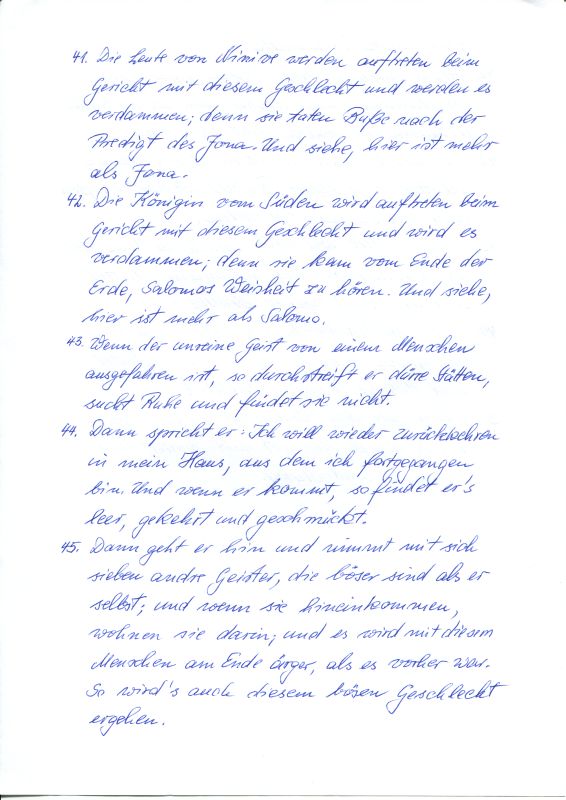 41. Die Leute von Ninive werden auftreten beim
Gericht mit diesem Geschlecht und werden es
verdammen; denn sie taten Buße nach der
Predigt des Jona. Und siehe, hier ist mehr
als Jona.
42. Die Königin vom Süden wird auftreten beim
Gericht mit diesem Geschlecht und wird es
verdammen; denn sie kam vom Ende der
Erde, Salomos Weisheit zu hören. Und siehe,
hier ist mehr als Salomo.
43. Wenn der unreine Geist von einem Menschen
ausgefahren ist, so durchstreift er dürre Stätten,
sucht Ruhe und findet sie nicht.
44. Dann spricht er: Ich will wieder zurückkehren
in mein Haus, aus dem ich fortgegangen
bin. Und wenn er kommt, so findet er's
leer, gekehrt und geschmückt.
45. Dann geht er hin und nimmt mit sich
sieben andre Geister, die böser sind als er
selbst; und wenn sie hineinkommen,
wohnen sie darin; und es wird mit diesem
Menschen am Ende ärger, als es vorher war.
So wird's auch diesem bösen Geschlecht
ergehen.